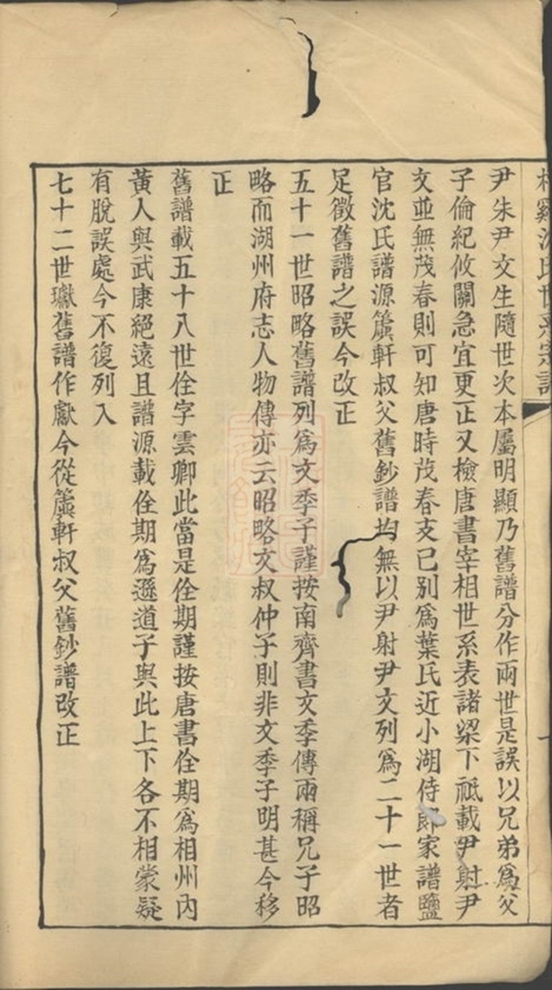 尹朱尹文生隨世次本屬明顯乃舊譜分作兩世是誤以兄弟爲父
子倫紀攸關急宜更正又檢唐書宰相世系表諸梁下祗載尹射尹
文並無茂春則可知唐時茂春支已别爲葉氏近小湖侍郎家譜鹽
官沈氏譜源簾軒叔父舊鈔譜均無以尹射尹文列爲二十一世者
足徵舊譜之誤今改正
五十一世昭略舊譜列爲文季子謹按南齊書文季傳兩稱兄子昭
略而湖州府志人物傳亦云昭略文叔仲子則非文季子明甚今移
正
舊譜載五十八世佺字雲卿此當是佺期謹按唐書佺期爲相州內
黃人與武康絕遠且譜源載佺期爲遜道子與此上下各不相蒙疑
有脫誤處今不復列入
七十二世瓛舊譜作獻今從簾軒叔父舊鈔譜改正